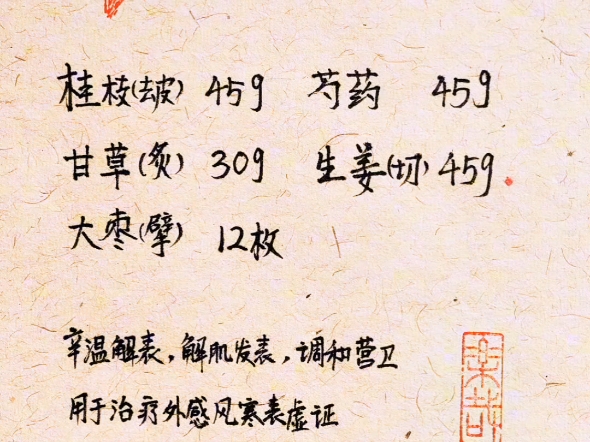 桂枝(去皮) 45g 芍药 45g
甘草(炙) 30g 生姜(切) 45g
大枣(擘) 12枚
辛温解表,解肌发表,调和营卫
用于治疗外感风寒表虚证